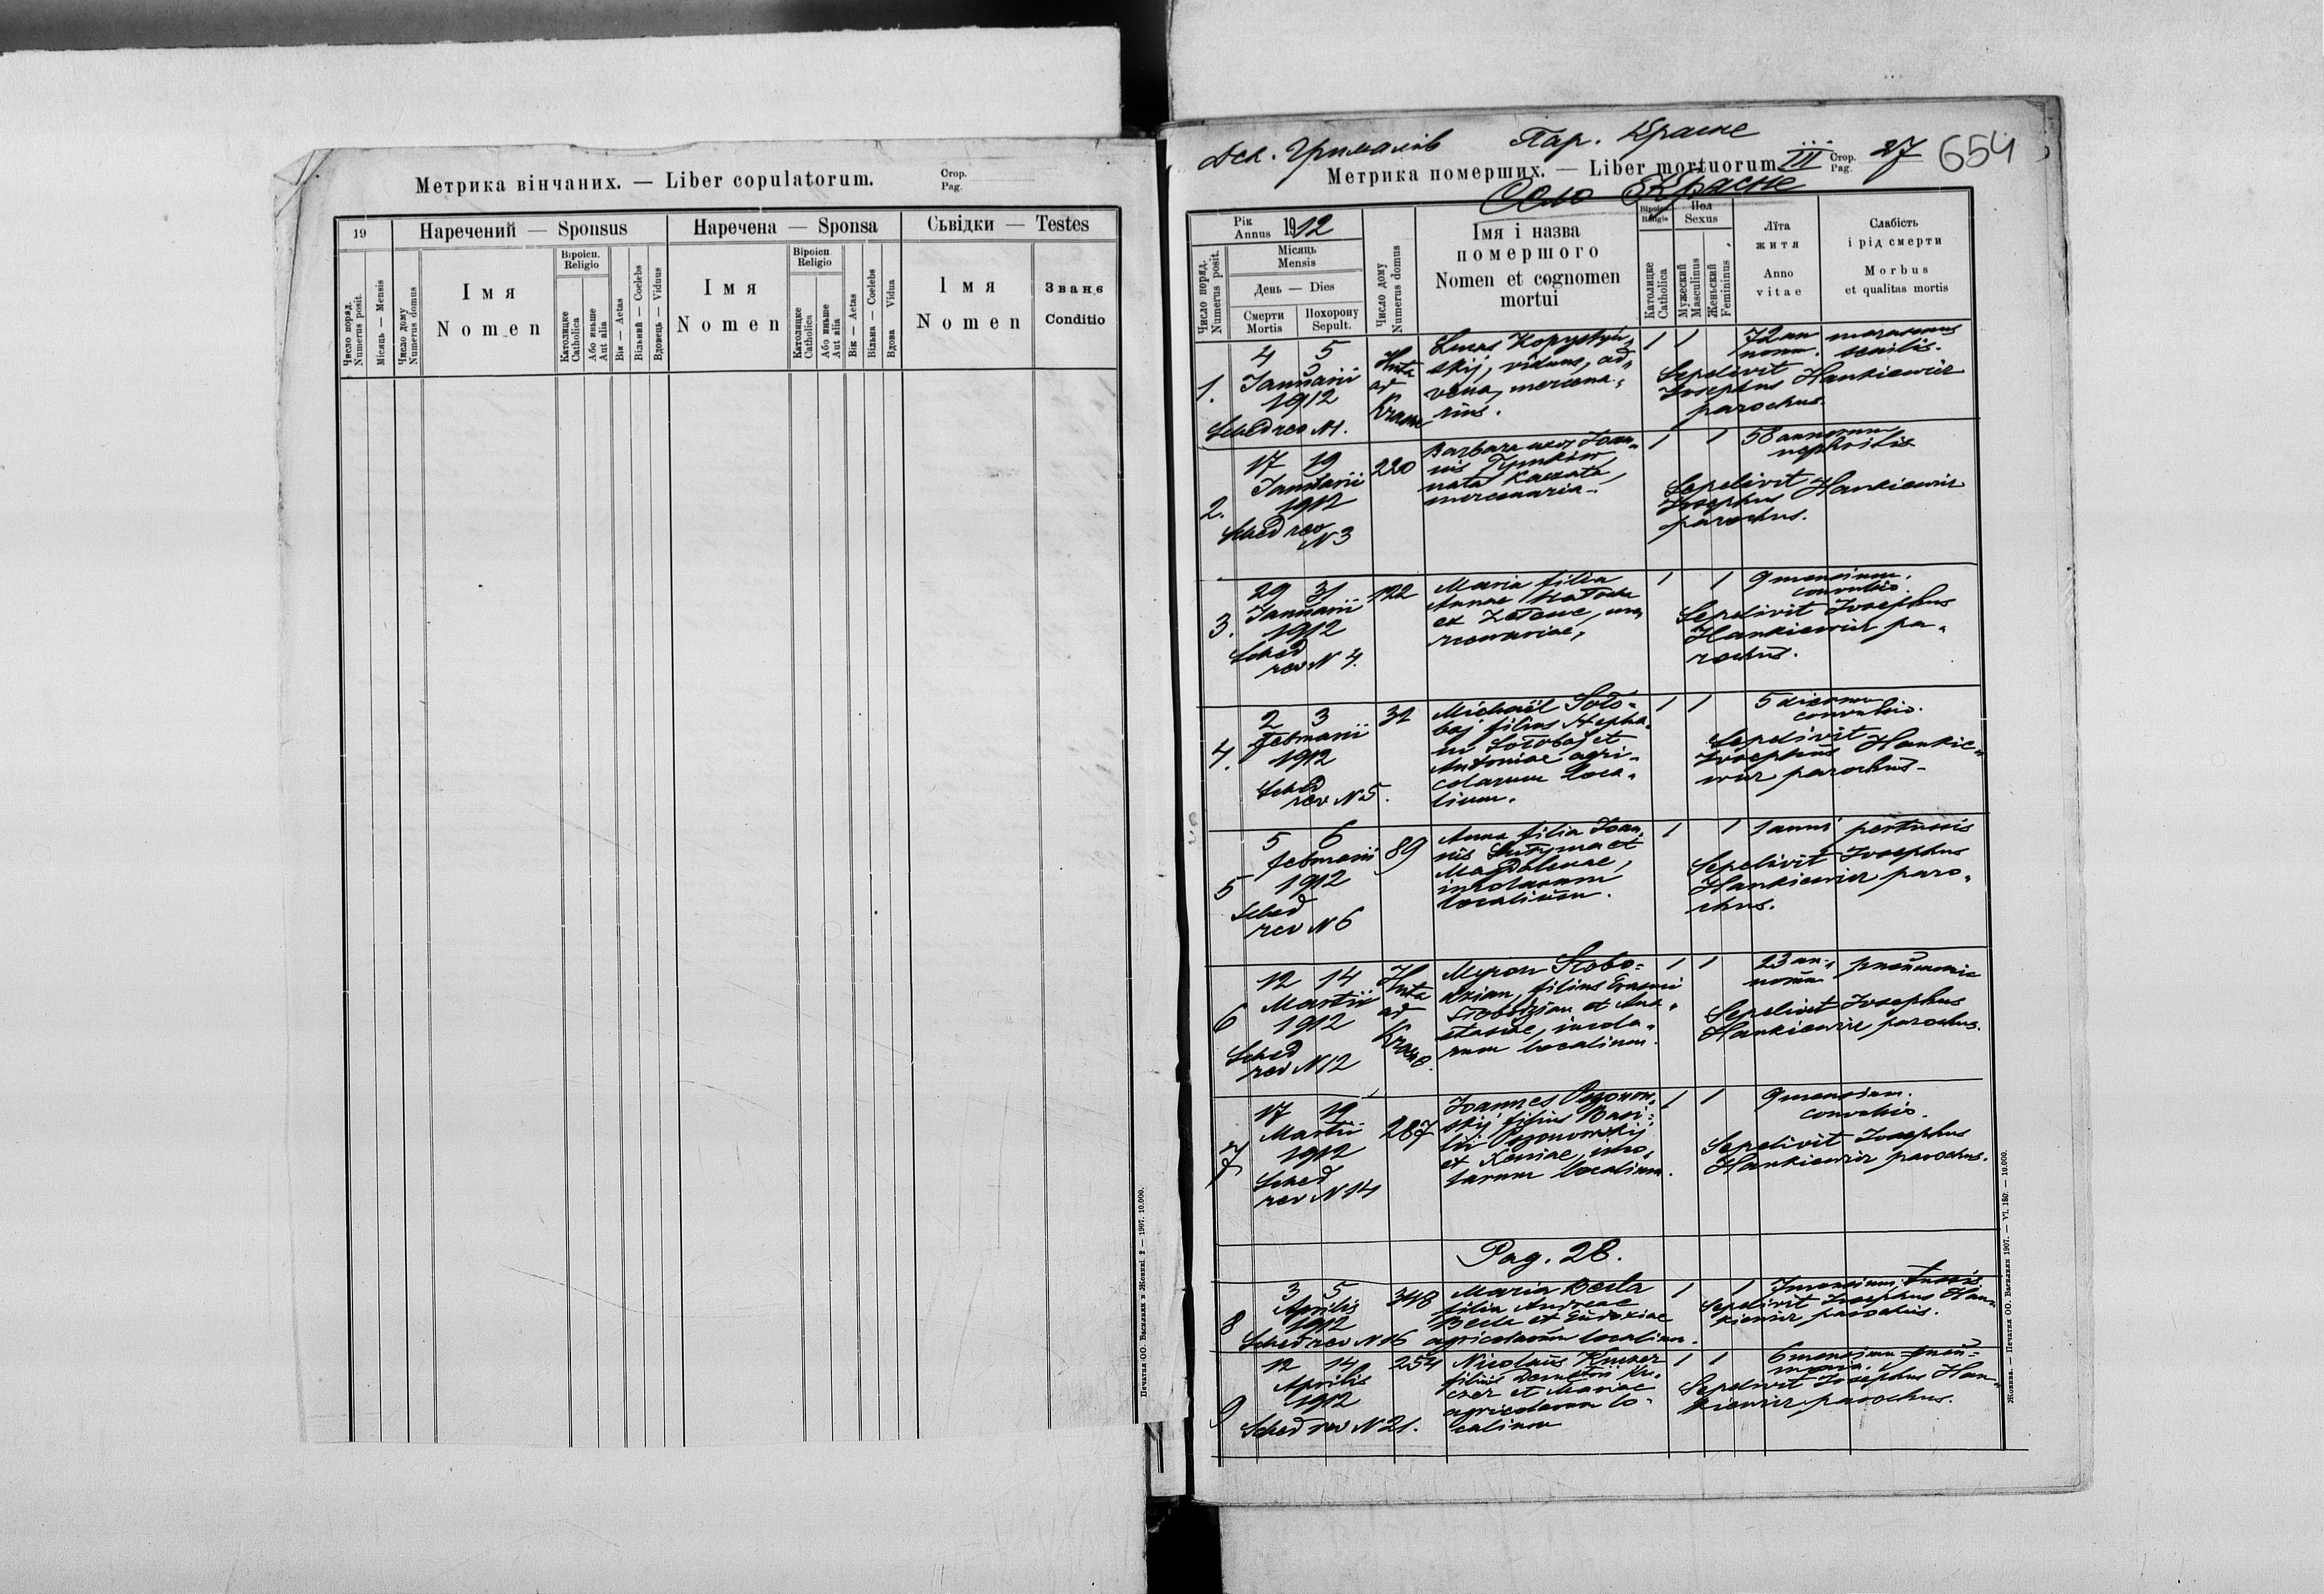 Метрика вінчаних. — Liber copulatorum.
Стор.
Pag.
19
Наречений — Sponsus
Наречена — Sponsa
Сьвідки — Testes
Число поряд.
Numerus posit.
Місяць — Mensis
Число дому
Numerus domus
Імя
Nomen
Віроісп.
Religio
Католицке
Catholica
Або иньше
Aut alia
Вік — Aetas
Вільний — Coelebs
Вдовець — Viduus
Імя
Nomen
Віроісп.
Religio
Католицке
Catholica
Або иньше
Aut alia
Вік — Aetas
Вільна — Coelebs
Вдова Vidua
Імя
Nomen
Званє
Conditio
Печатня ОО. Василіян в Жовкві. 2 — 1907. 10.000.
Дек. Грималів Пар. Красне
Метрика померших. — Liber mortuorum. III Стор.
Pag. 27 654
Село Красне
Рік
Annus 1912
Число поряд.
Numerus posit.
Місяць
Mensis
День — Dies
Смерти
Mortis
Похорону
Sepult.
Число дому
Numerus domus
Імя і назва
помершого
Nomen et cognomen
mortui
Віроісп.
Religio
Католицке
Catholica
Пол
Sexus
Мужеский
Masculinus
Женьский
Femininus
Літа
житя
Anno
vitae
Слабість
і рід смерти
Morbus
et qualitas mortis
1. 4 5
Januarii
1912
Sched rev N 1.
Huta
ad
Krasne
Lucas Kopystyń=
skij, viduus, ad=
vena, mercena=
rius.
1 1 72 an
norum. marasmus
senilis.
Sepelivit
Josephus Hankiewicz
parochus.
2. 17 19
Januarii
1912
Sched rev
N 3
220
Barbara uxor Joan=
nis
nata
mercenaria.
1 1 58 annorum
nephritis
Sepelivit
Josephus Hankiewicz
parochus.
3. 29 31
Januarii
1912
Sched
rev N 4.
122
Maria filia
Annae
et me=
rcenariae,
1 1 9 mensium.
convulsio.
Sepelivit Josephus
Hankiewicz pa=
rochus.
4. 2 3
Februarii
1912
Sched
rev N 5.
32
Michaël Soło=
baj filius Stepha=
ni Sołobaj et
Antoniae agri=
colarum loca=
lium.
1 1 5 dierum
convulsio.
Sepelivit
Josephus Hankie=
wicz parochus.
5 5 6
Februarii
1912
Sched
rev N 6
89
Anna filia Joan=
nis et
Magdalenae,
incolarum
localium.
1 1 1 anni pertussis
Sepelivit Josephus
Hankiewicz paro=
chus.
6 12 14
Martii
1912
Sched
rev N 12
Huta
ad
Krasne.
Myron Słobo=
dzian, filius Erasmi
Słobodzian et Ana=
stasiae, incola=
rum localium.
1 1 23 an=
norum pneumonia
Sepelivit Josephus
Hankiewicz parochus.
7 17 19
Martii
1912
Sched
rev N 14
287
Joannes
skij filius Basi=
lii
et Xeniae, inco=
larum localium.
1 1 9 mensium.
convulsio.
Sepelivit Josephus
Hankiewicz parochus.
Pag. 28.
8 3 5
Aprilis
1912
Sched rev N 16
348
Maria Becla
filia Andreae
Becla et Eudoxiae
agricolarum localium.
1 1 7 mensium, tussis
Sepelivit Josephus Han=
kiewicz parochus.
9 12 14
Aprilis
1912
Sched rev N 21.
254
Nicolaus
filius Demetrii
et Mariae
agricolarum lo=
calium
1 1 6 mensium pneu=
monia.
Sepelivit Josephus Han=
kiewicz parochus.
Жовква. — Печатня ОО. Василіян 1907. — VI. 180. — 10.000.